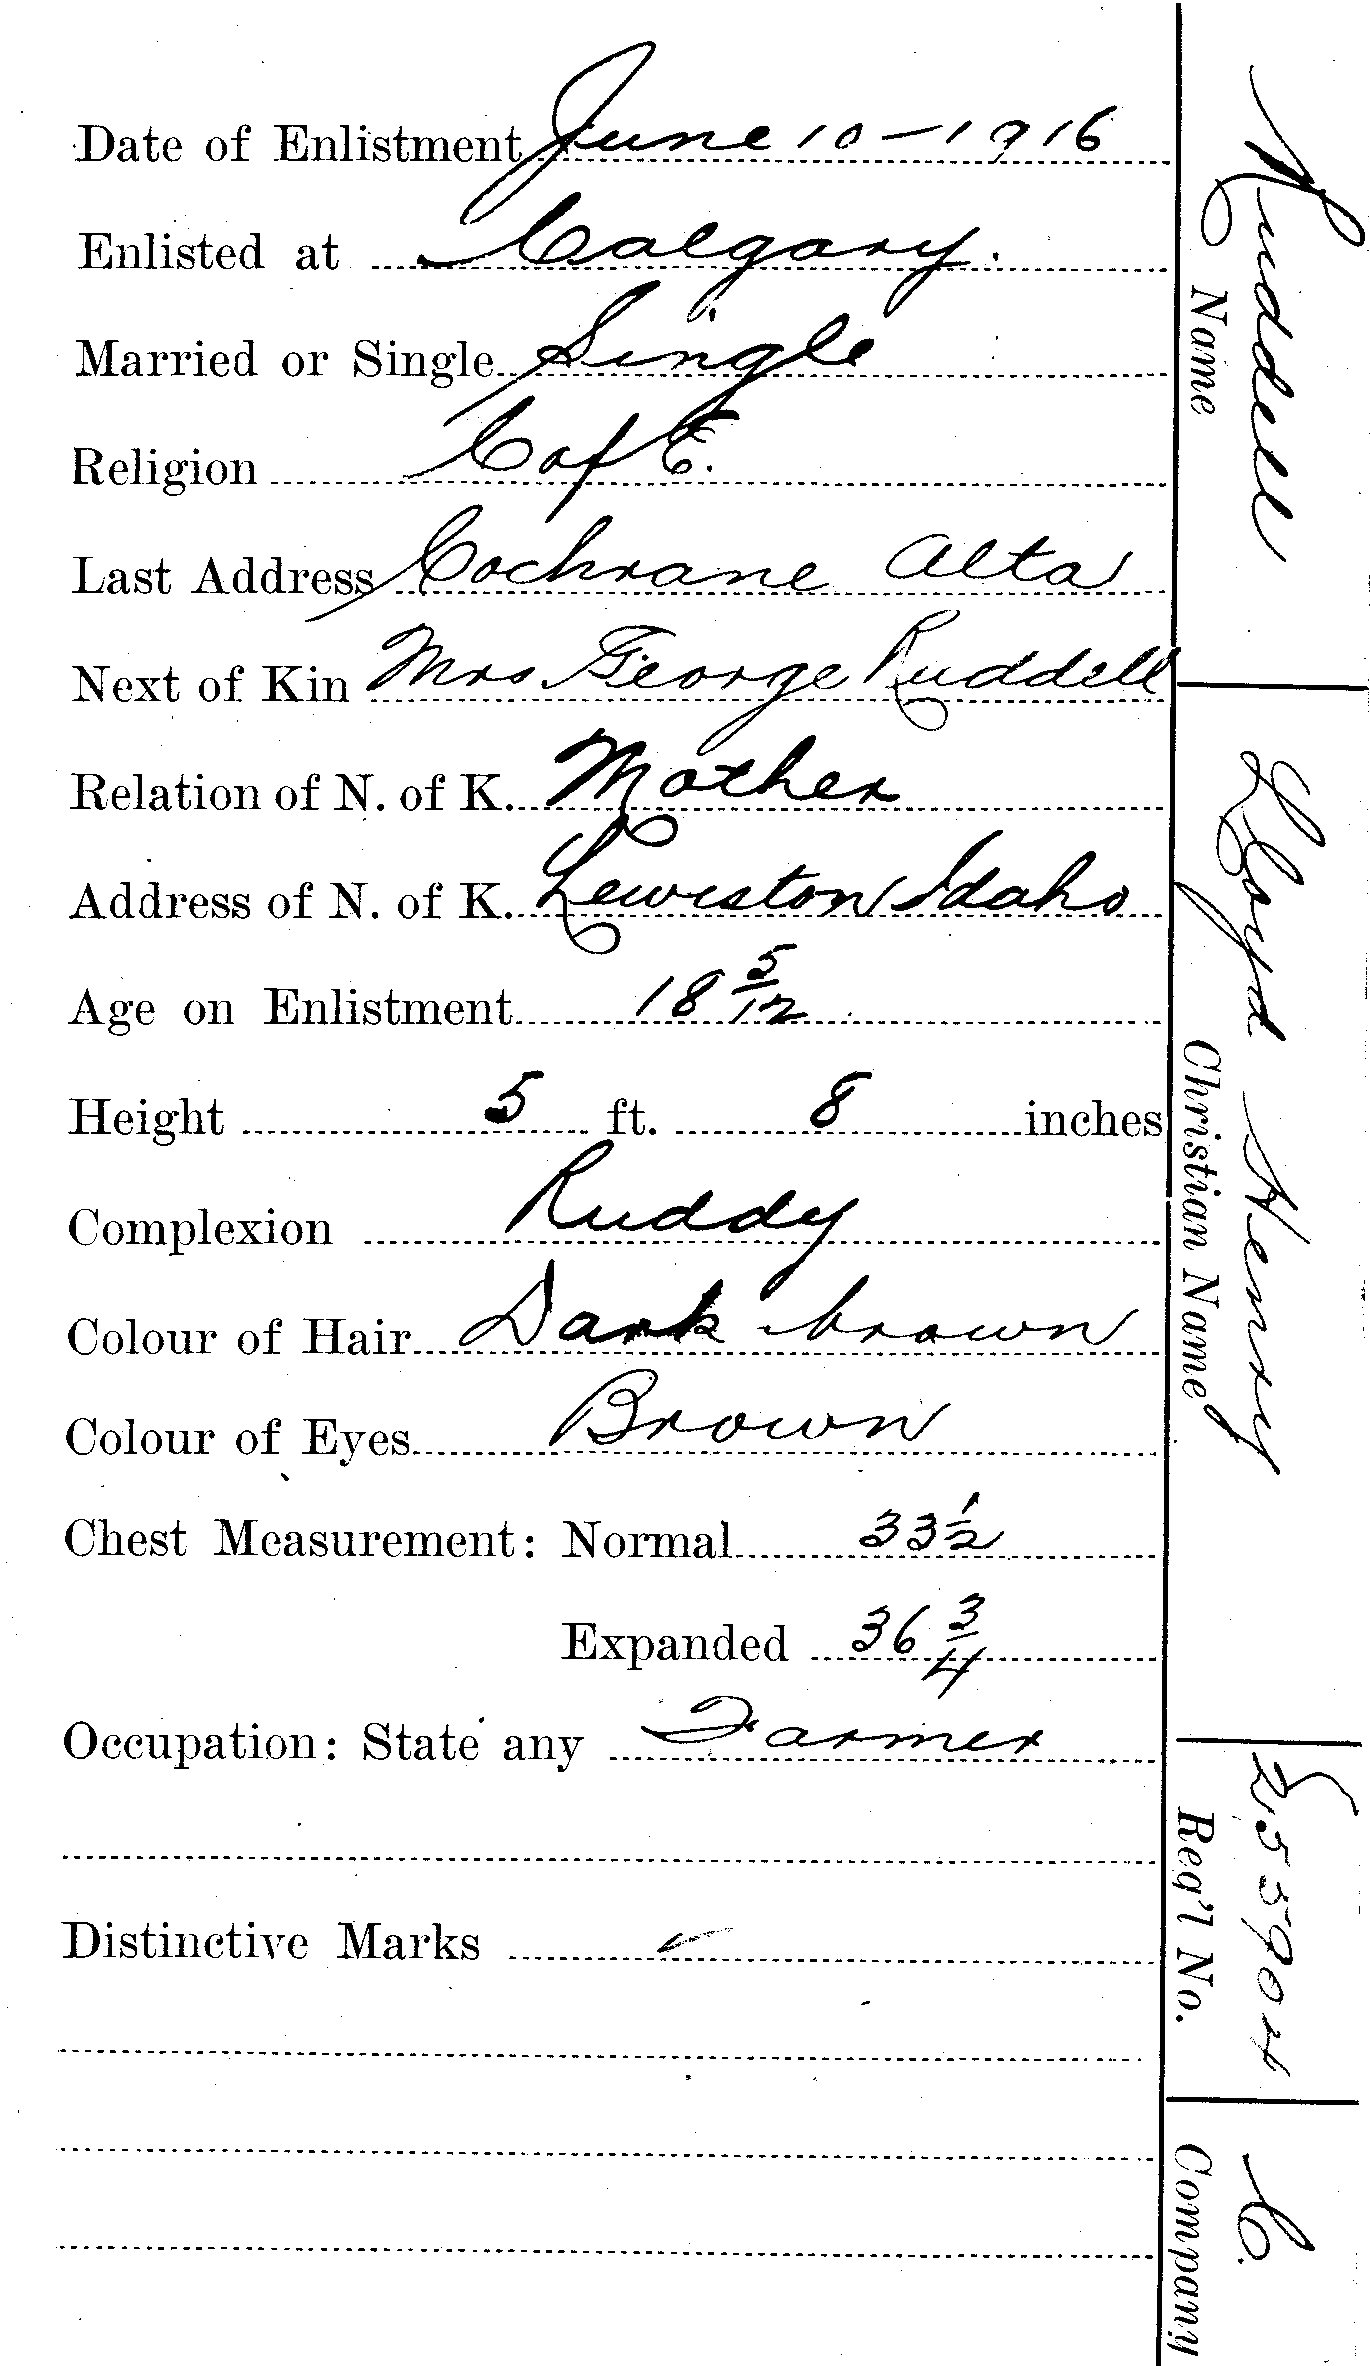 Date of Enlistment June 10-1916
Enlisted at Calgary.
Married or Single Single
Religion C of E.
Last Address Cochrane Alta
Next of Kin Mrs George Ruddell
Relation of N. of K. Mother
Address of N. of K. Lewiston Idaho
Age on Enlistment 18 5/12
Height 5 ft. 8 inches
Complexion Ruddy
Colour of Hair Dark brown
Colour of Eyes Brown
Chest Measurement: Normal 33 1/2
Expanded 36 3/4
Occupation: State any Farmer
Distinctive Marks
Ruddell
Name
Lloyd Henry
Christian Name
Reg'l No.
C.
Company